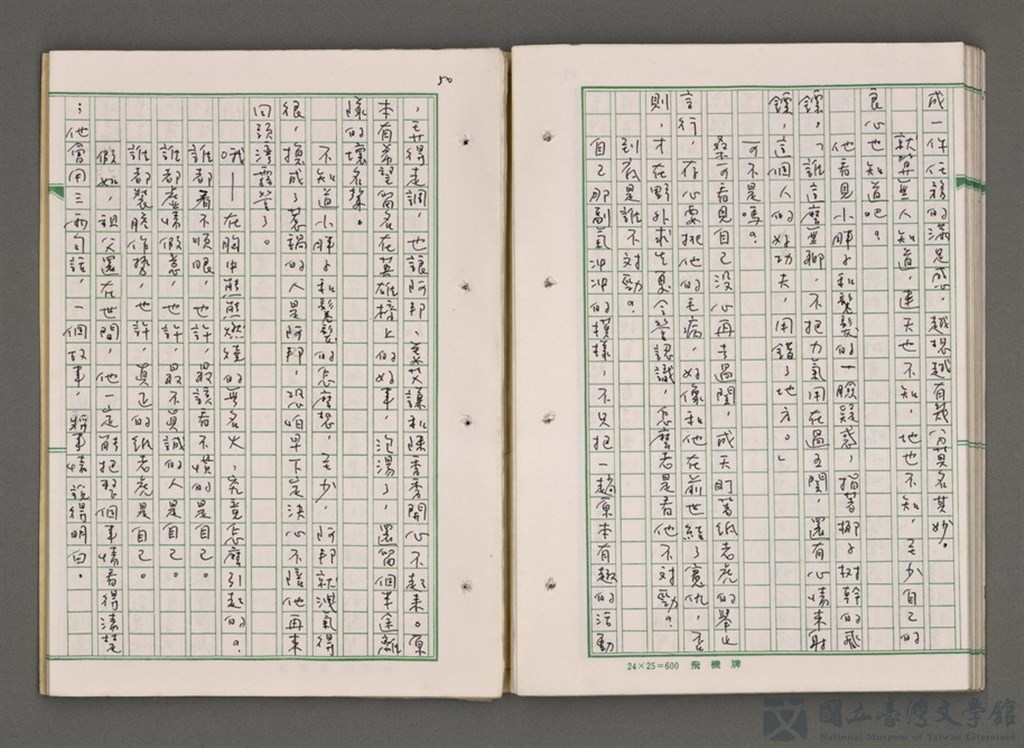 成一件任務的滿足感，越想越有幾分莫名其妙。
就算無人知道，連天也不知，地也不知，至少自己的
良心也知道吧？
他看見小胖子和鬈髮的一臉疑惑，指著椰子樹幹的飛
鏢，「誰這麼無聊，不把力氣用在過五關，還有心情來射
鏢，這個人的好功夫，用錯了地方。」
可不是嗎？
桑可看見自己沒心再去過關，成天盯著紙老虎的舉止
言行，存心要挑他的毛病，好像和他在前世結了寃仇，否
則，才在野外求生夏令營認識，怎麼老是看他不對勁？
到底是誰不對勁？
自己那副氣沖沖的模樣，不只把一趟原本有趣的活動
50
，弄得走調，也讓阿邦、葛艾謙和陳季季開心不起來。原
本有希望留名在英雄榜上的好事，泡湯了，還留個半途離
隊的壞名聲。
不知道小胖子和鬈髮的怎麼想，至少，阿邦就洩氣得
很，換成了惹禍的人是阿邦，恐怕早下定決心不陪他再來
回頭灣露營了。
哦——在胸中熊熊燃燒的無名火，究竟怎麼引起的？
誰都看不順眼，也許，最該看不慣的是自己。
誰都虛情假意，也許，最不真誠的人是自己。
誰都裝腔作勢，也許，真正的紙老虎是自己。
假如，祖父還在世間，他一定能把整個事情看得清楚
；他會用三兩句話，一個故事，將事情說得明白。
24×25=600 飛機牌
國立臺灣文學館
National Museum of Taiwan Literature